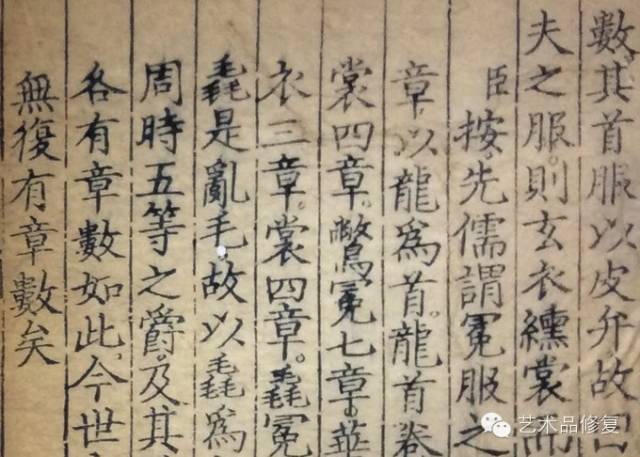 數其首服以皮弁故
夫之服則玄衣纁裳而
臣按先儒謂冕服之
章以龍為首龍首卷
裳四章鷩冕七章華
衣三章裳四章毳冕
毳是亂毛故以毳為
周時五等之爵及其
各有章數如此今世
無復有章數矣
艺术品修复